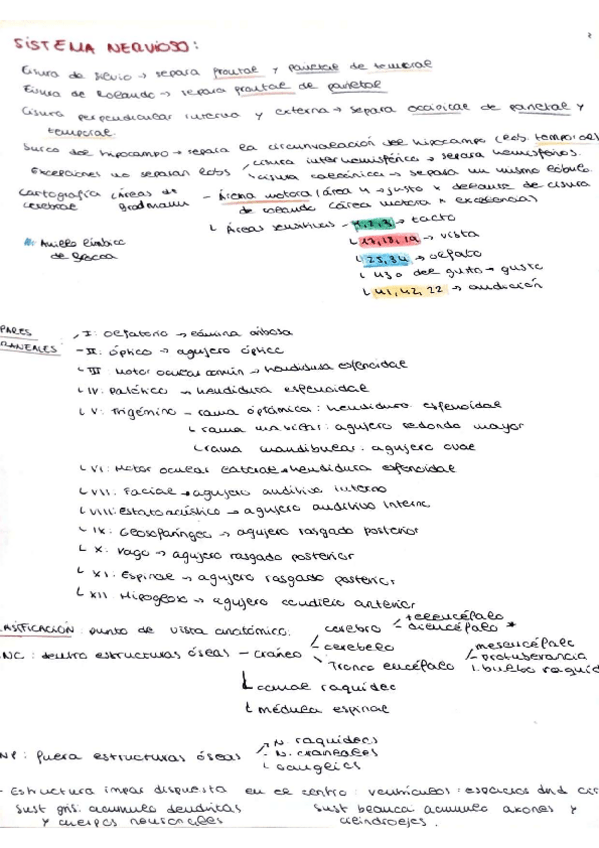 SISTEMA NERVIOSO:
Cisura de Silvio → separa frontal y parietal de temporal
Cisura de Rolando → separa frontal de parietal
Cisura perpendicular interna y externa → separa occipital de parietal y
temporal
Surco del hipocampo → separa la circunvalación del hipocampo (lob. temporal)
Excepciones no separan lobs
cisura interhemisférica → separa hemisferios.
cisura calcarina → separa un mismo lóbulo.
Cartografía (Áreas de
cerebral Brodmann
- Área motora (área 4 → justo x delante de cisura
de Rolando (área motora x excelencia)
Áreas sensitivas - 1, 2, 3 → tacto
17, 18, 19 → vista
25, 34 → olfato
43 o del gusto → gusto
41, 42, 22 → audición
Anillo límbico
de Broca
PARES
CRANEALES
I: Olfatorio → lámina cribosa
II: óptico → agujero óptico
III: Motor ocular común → hendidura esfenoidal
IV: Patético → hendidura esfenoidal
V: Trigémino - rama oftálmica: hendidura esfenoidal
rama maxilar: agujero redondo mayor
rama mandibular: agujero oval
VI: Motor ocular lateral → hendidura esfenoidal
VII: Facial → agujero auditivo interno
VIII: estatoacústico → agujero auditivo interno
IX: Glosofaríngeo → agujero rasgado posterior
X: Vago → agujero rasgado posterior
XI: Espinal → agujero rasgado posterior
XII: Hipogloso → agujero condíleo anterior
CLASIFICACIÓN: punto de vista anatómico:
SNC: dentro estructuras óseas - cráneo
cerebro
telencéfalo
diencéfalo *
cerebelo
Tronco encéfalo
mesencéfalo
protuberancia
bulbo raquíd
canal raquídeo
médula espinal
SNP: fuera estructuras óseas
N. raquídeos
N. craneales
ganglios
- Estructura impar dispuesta en el centro: ventrículos: espacios dnd cir
Sust gris: acumulo dendritas
y cuerpos neuronales
Sust blanca: acumulo axones y
cilindroejes.